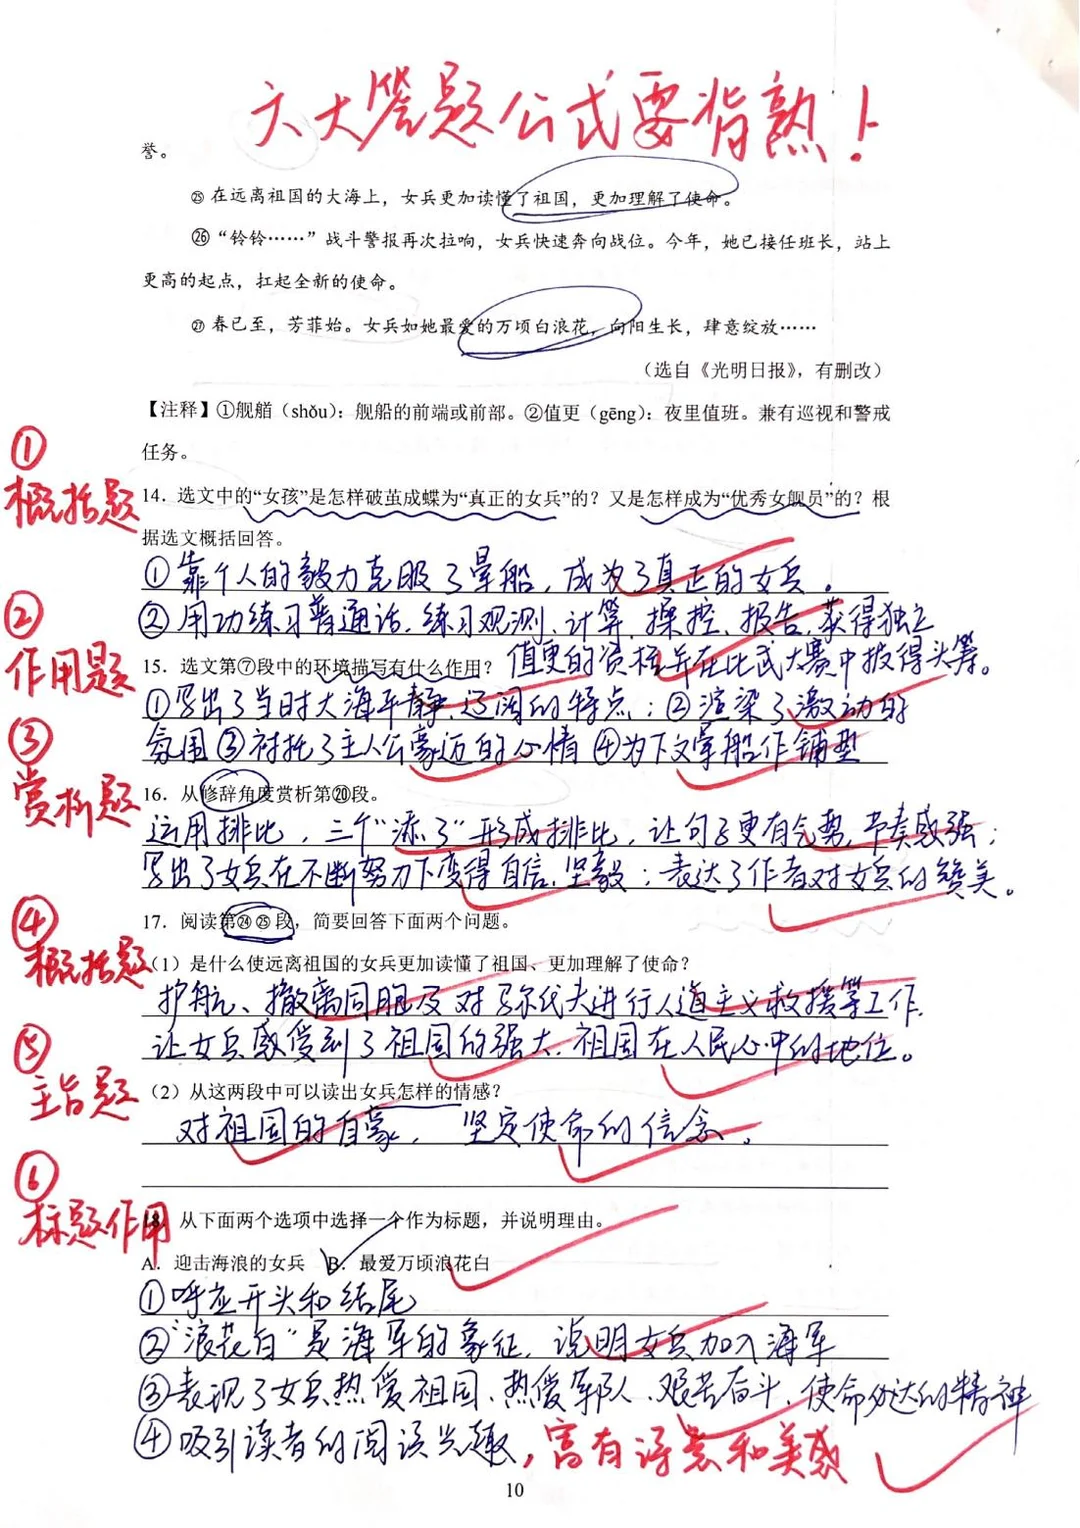 六大答题公式要背熟！
誉。
㉕ 在远离祖国的大海上，女兵更加读懂了祖国，更加理解了使命。
㉖ “铃铃……”战斗警报再次拉响，女兵快速奔向战位。今年，她已接任班长，站上
更高的起点，扛起全新的使命。
㉗ 春已至，芳菲始。女兵如她最爱的万顷白浪花，向阳生长，肆意绽放……
（选自《光明日报》，有删改）
【注释】①舰艏（shǒu）：舰船的前端或前部。②值更（gēng）：夜里值班。兼有巡视和警戒
任务。
① 概括题
14．选文中的“女孩”是怎样破茧成蝶为“真正的女兵”的？又是怎样成为“优秀女舰员”的？根
据选文概括回答。
①靠个人的毅力克服了晕船，成为了真正的女兵。
②用功练习普通话，练习观测、计算、操控、报告，获得独立
值更的资格并在比武大赛中拔得头筹。
② 作用题
15．选文第⑦段中的环境描写有什么作用？
①写出了当时大海平静、辽阔的特点；②渲染了激动的
氛围③衬托了主人公豪迈的心情④为下文晕船作铺垫
③ 赏析题
16．从修辞角度赏析第⑳段。
运用排比，三个“添了”形成排比，让句子更有气势，节奏感强；
写出了女兵在不断努力下变得自信、坚毅；表达了作者对女兵的赞美。
④ 概括题
17．阅读第㉔㉕段，简要回答下面两个问题。
（1）是什么使远离祖国的女兵更加读懂了祖国、更加理解了使命？
护航、撤离同胞及对马尔代夫进行人道主义救援等工作，
让女兵感受到了祖国的强大，祖国在人民心中的地位。
⑤ 主旨题
（2）从这两段中可以读出女兵怎样的情感？
对祖国的自豪，坚定使命的信念。
⑥ 标题作用
18．从下面两个选项中选择一个作为标题，并说明理由。
A．迎击海浪的女兵 B．最爱万顷浪花白
①呼应开头和结尾
②“浪花白”是海军的象征，说明女兵加入海军
③表现了女兵热爱祖国、热爱部队、艰苦奋斗、使命必达的精神
④吸引读者的阅读兴趣，富有诗意和美感
10